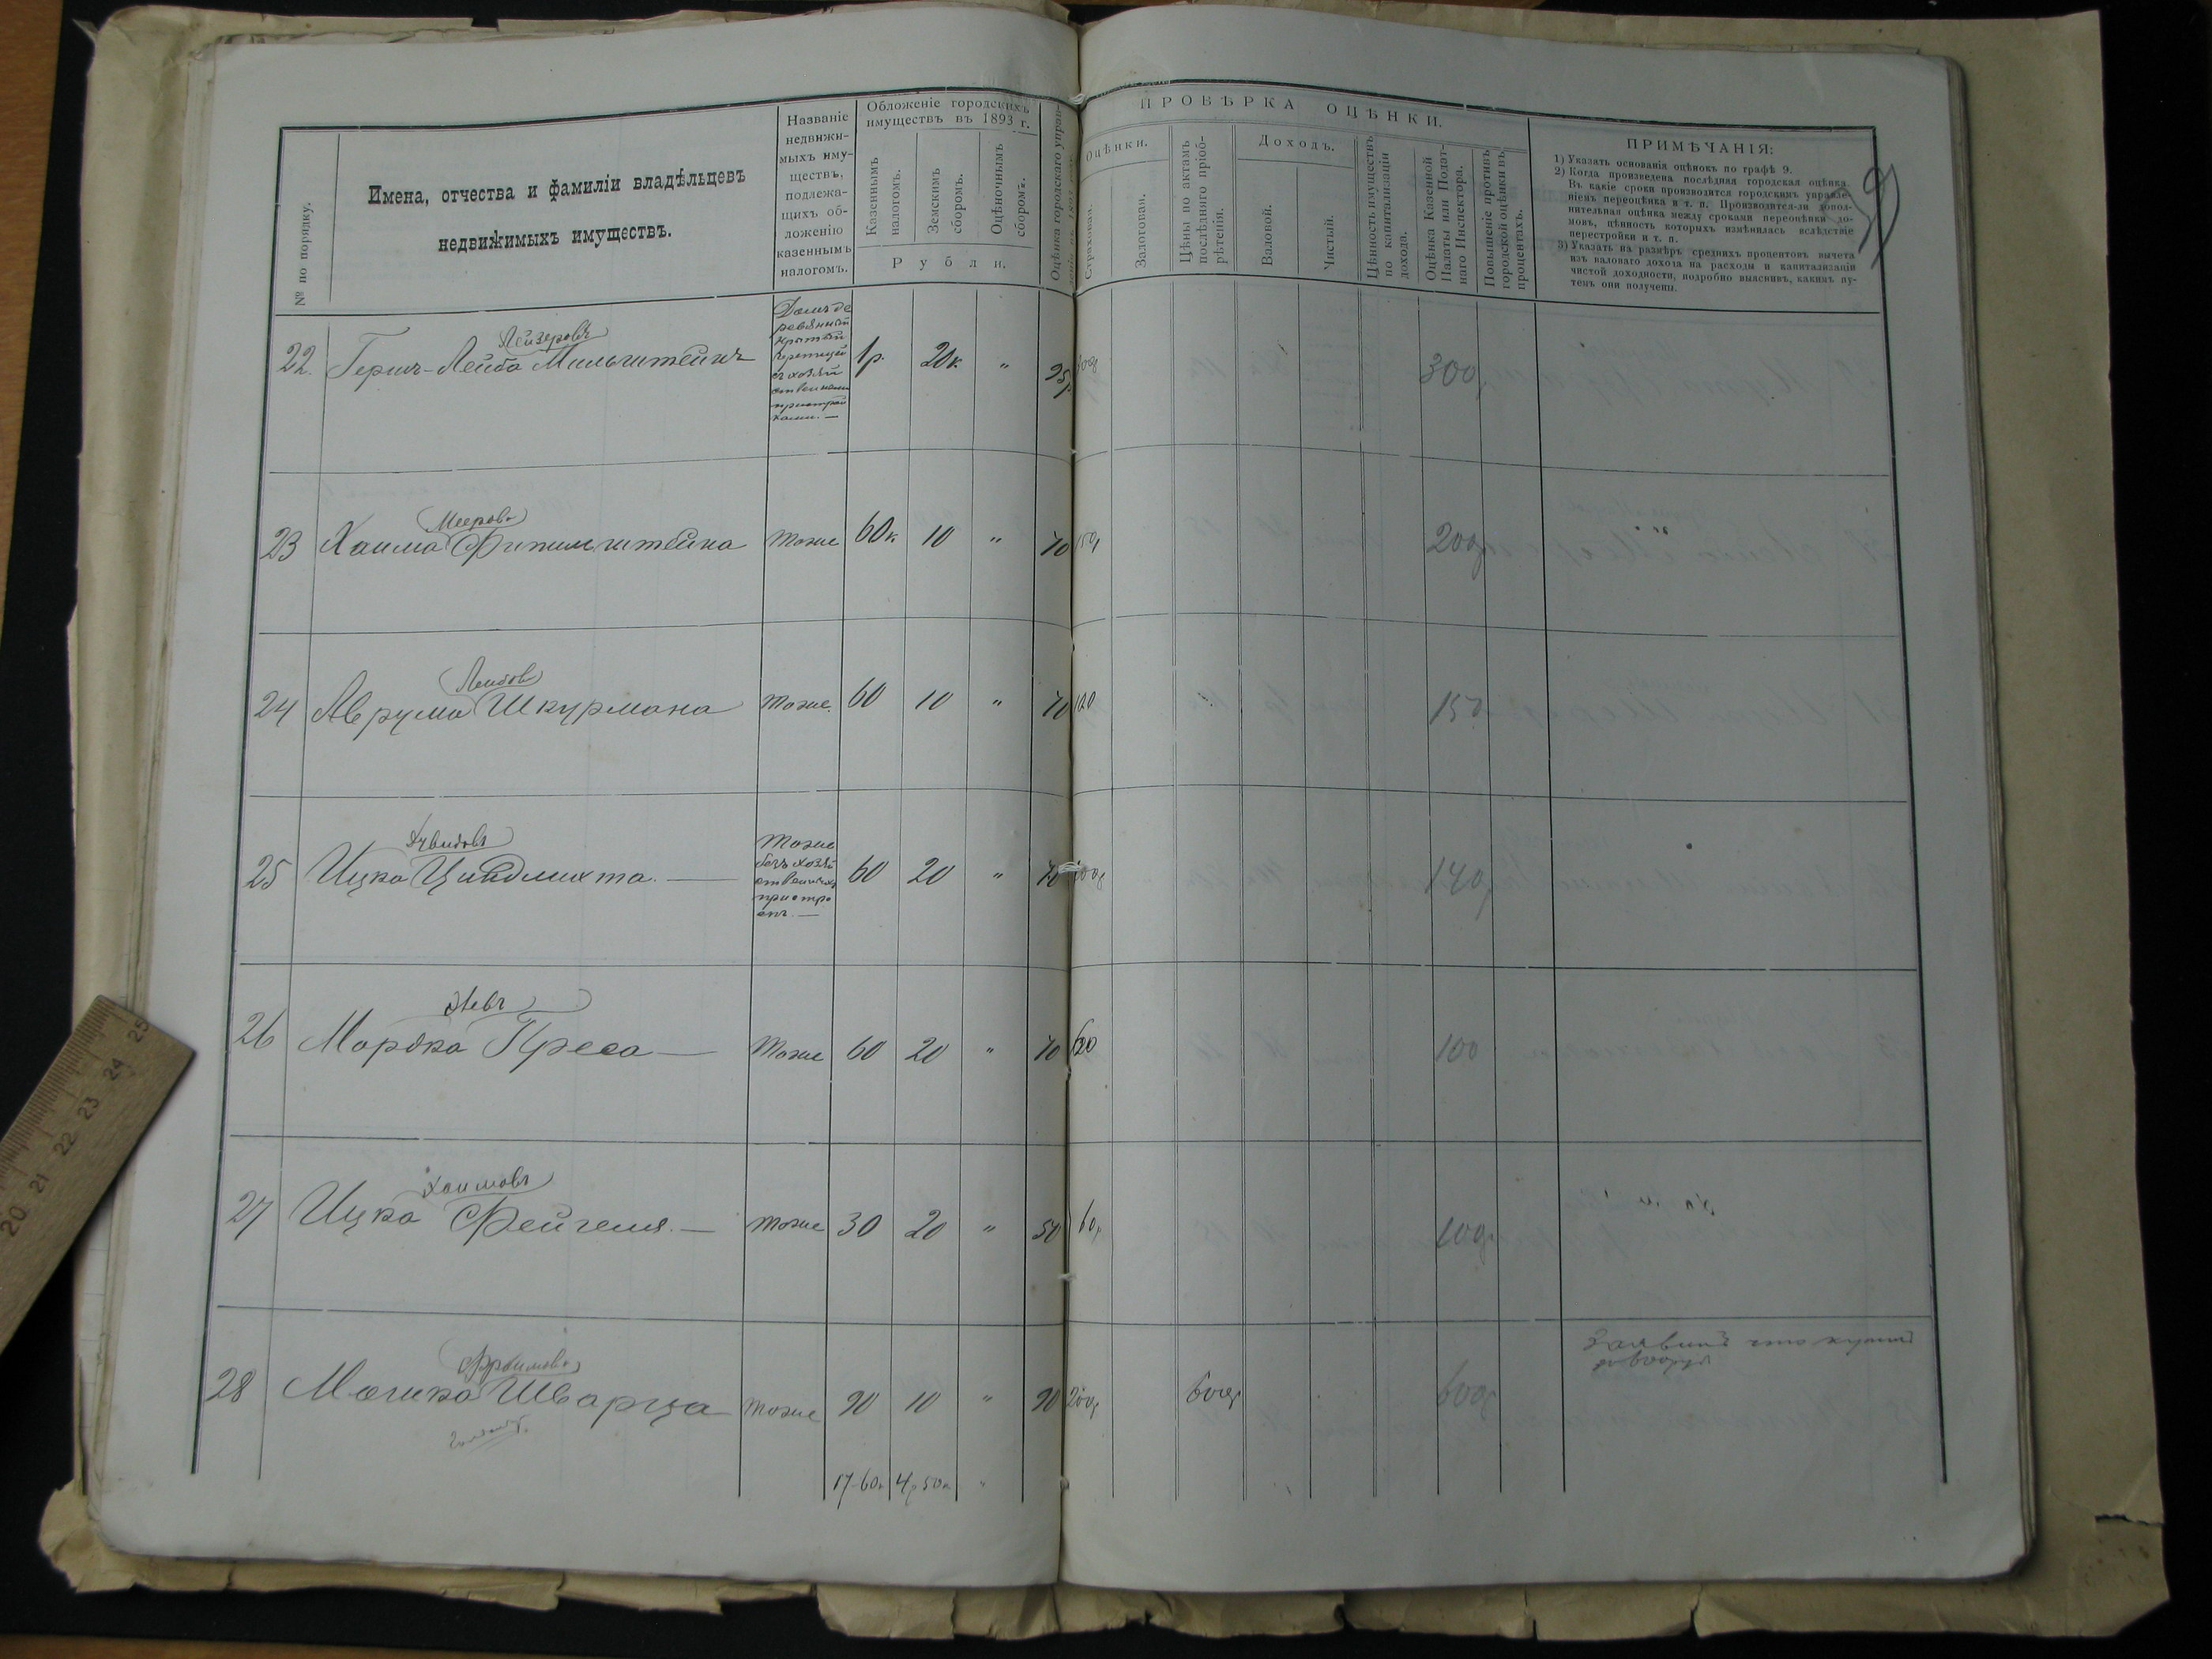 Имена, отчества и фамиліи владѣльцевъ
недвижимыхъ имуществъ.
№ по порядку.
Названіе
недвижи-
мыхъ иму-
ществъ,
подлежа-
щихъ об-
ложенію
казеннымъ
налогомъ.
Обложеніе городскихъ
имуществъ въ 1893 г.
Казеннымъ
налогомъ.
Земскимъ
сборомъ.
Оцѣночнымъ
сборомъ.
Рубли.
Оцѣнка городскаго управ-
ПРОВѢРКА ОЦѢНКИ.
Оцѣнки.
Страховая.
Залоговая.
Цѣны по актамъ
послѣдняго пріоб-
рѣтенія.
Доходъ.
Валовой.
Чистый.
Цѣнность имуществъ
по капитализаціи
дохода.
Оцѣнка Казенной
Палаты или Подат-
наго Инспектора.
Повышеніе противъ
городской оцѣнки въ
процентахъ.
ПРИМѢЧАНІЯ:
1) Указать основанія оцѣнокъ по графѣ 9.
2) Когда произведена послѣдняя городская оцѣнка.
Въ какіе сроки производится городскимъ управле-
ніемъ переоцѣнка и т. п. Производится-ли допол-
нительная оцѣнка между сроками переоцѣнки до-
мовъ, цѣнность которыхъ измѣнилась вслѣдствіе
перестройки и т. п.
3) Указать на размѣръ среднихъ процентовъ вычета
изъ валоваго дохода на расходы и капитализаціи
чистой доходности, подробно выяснивъ, какимъ пу-
темъ они получены.
Лейзеровъ
22. Гершъ-Лейба Мильштейнъ
Домъ де
ревянный
крытый
черепицей
съ хозяй
ственными
пристрой
ками. —
1р. 20к. " 25р 300р 300
Мееровъ
23 Хаима Финкильштейна тоже 60к. 10 " 70 150р 200р
Лейбов
24 Аврума Шкурмана тоже. 60 10 " 70 100 150
Давидовъ
25 Ицка Циндлихта. —
Тоже
безъ хозяй
ственныхъ
пристро
екъ. —
60 20 " 70 100р 140р
26 Мордка Преса — тоже 60 20 " 70 100
Хаимовъ
27 Ицка Фейгеля. — тоже 30 20 " 50 60р 100р
Фроимовъ
28 Мошка Шварца тоже 90 10 " 90 200р 600р 600р
Заявилъ что купилъ
17-60к 4р50к "